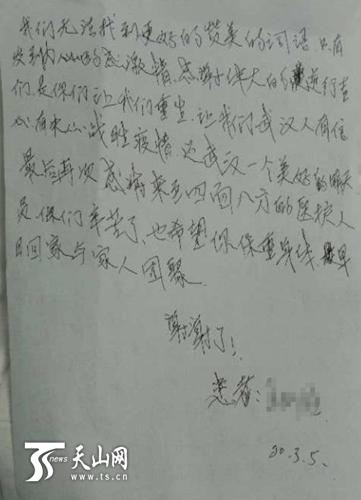 我们无法找到更好的赞美的词语.只有
发自内心的感激情.感谢伟大的逆行者
们,是你们让我们重生,让我们武汉人有信
心有决心战胜疫情.还武汉一个美好的明天
最后再次感谢来至四面八方的医护人
员.你们辛苦了.也希望你保重身体,早
日回家与家人团聚.
谢谢了!
患者:
20.3.5.
TS news 天山网
www.ts.cn